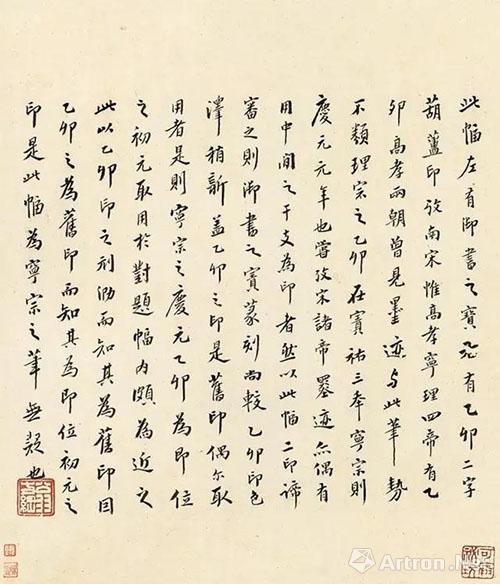 此幅左有御書之寶有乙卯二字
葫蘆印攷南宋惟高孝寧理四帝有乙
卯高孝兩朝曾見墨迹与此筆勢
不類理宗之乙卯在寶祐三年寧宗則
慶元元年也嘗攷宋諸帝墨迹亦偶有
用中間之干支為印者然以此幅二印諦
審之則御書之寶篆刻尚較乙卯印色
澤稍新蓋乙卯之印是舊印偶尔取
用者是則寧宗之慶元乙卯為即位
之初元取用於對題幅内頗為近之
此以乙卯印之刻泐而知其為舊印因
乙卯之為舊印而知其為即位初元之
印是此幅為寧宗之筆無疑也
Artron.Net